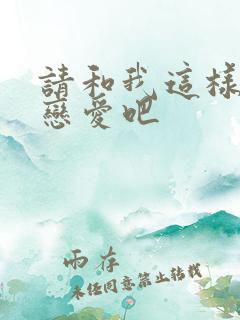 請和我這樣
戀愛吧
兩存
未經同意禁止轉載